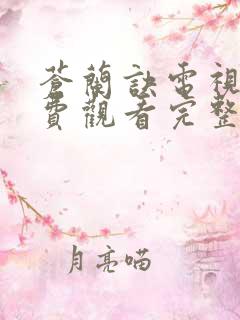 蒼蘭訣電視
費觀看完整
月亮喵